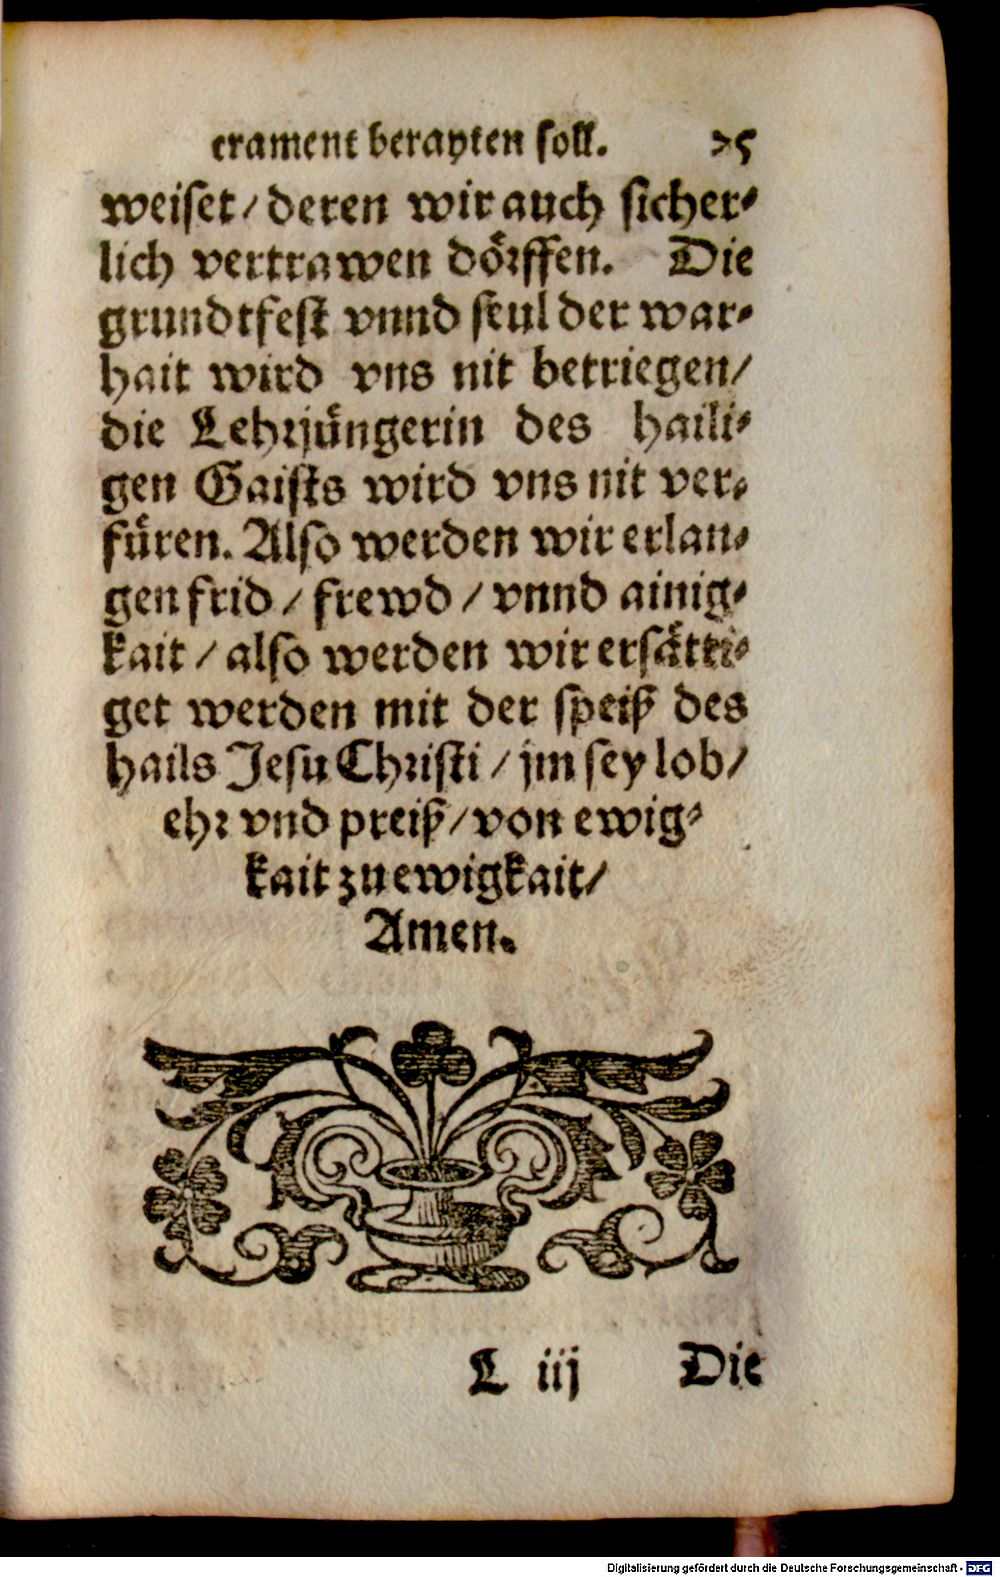 crament berayten soll. 75
weiset / deren wir auch sicher⸗
lich vertrawen doͤrffen. Die
grundtfest vnnd seul der war⸗
hait wird vns nit betriegen /
die Lehrjuͤngerin des haili⸗
gen Gaists wird vns nit ver⸗
fuͤren. Also werden wir erlan⸗
gen frid / frewd / vnnd ainig⸗
kait / also werden wir ersaͤtti⸗
get werden mit der speiß des
hails Jesu Christi / jm sey lob /
ehr vnd preiß / von ewig⸗
kait zu ewigkait /
Amen.
L iij Die
Digitalisierung gefördert durch die Deutsche Forschungsgemeinschaft - DFG